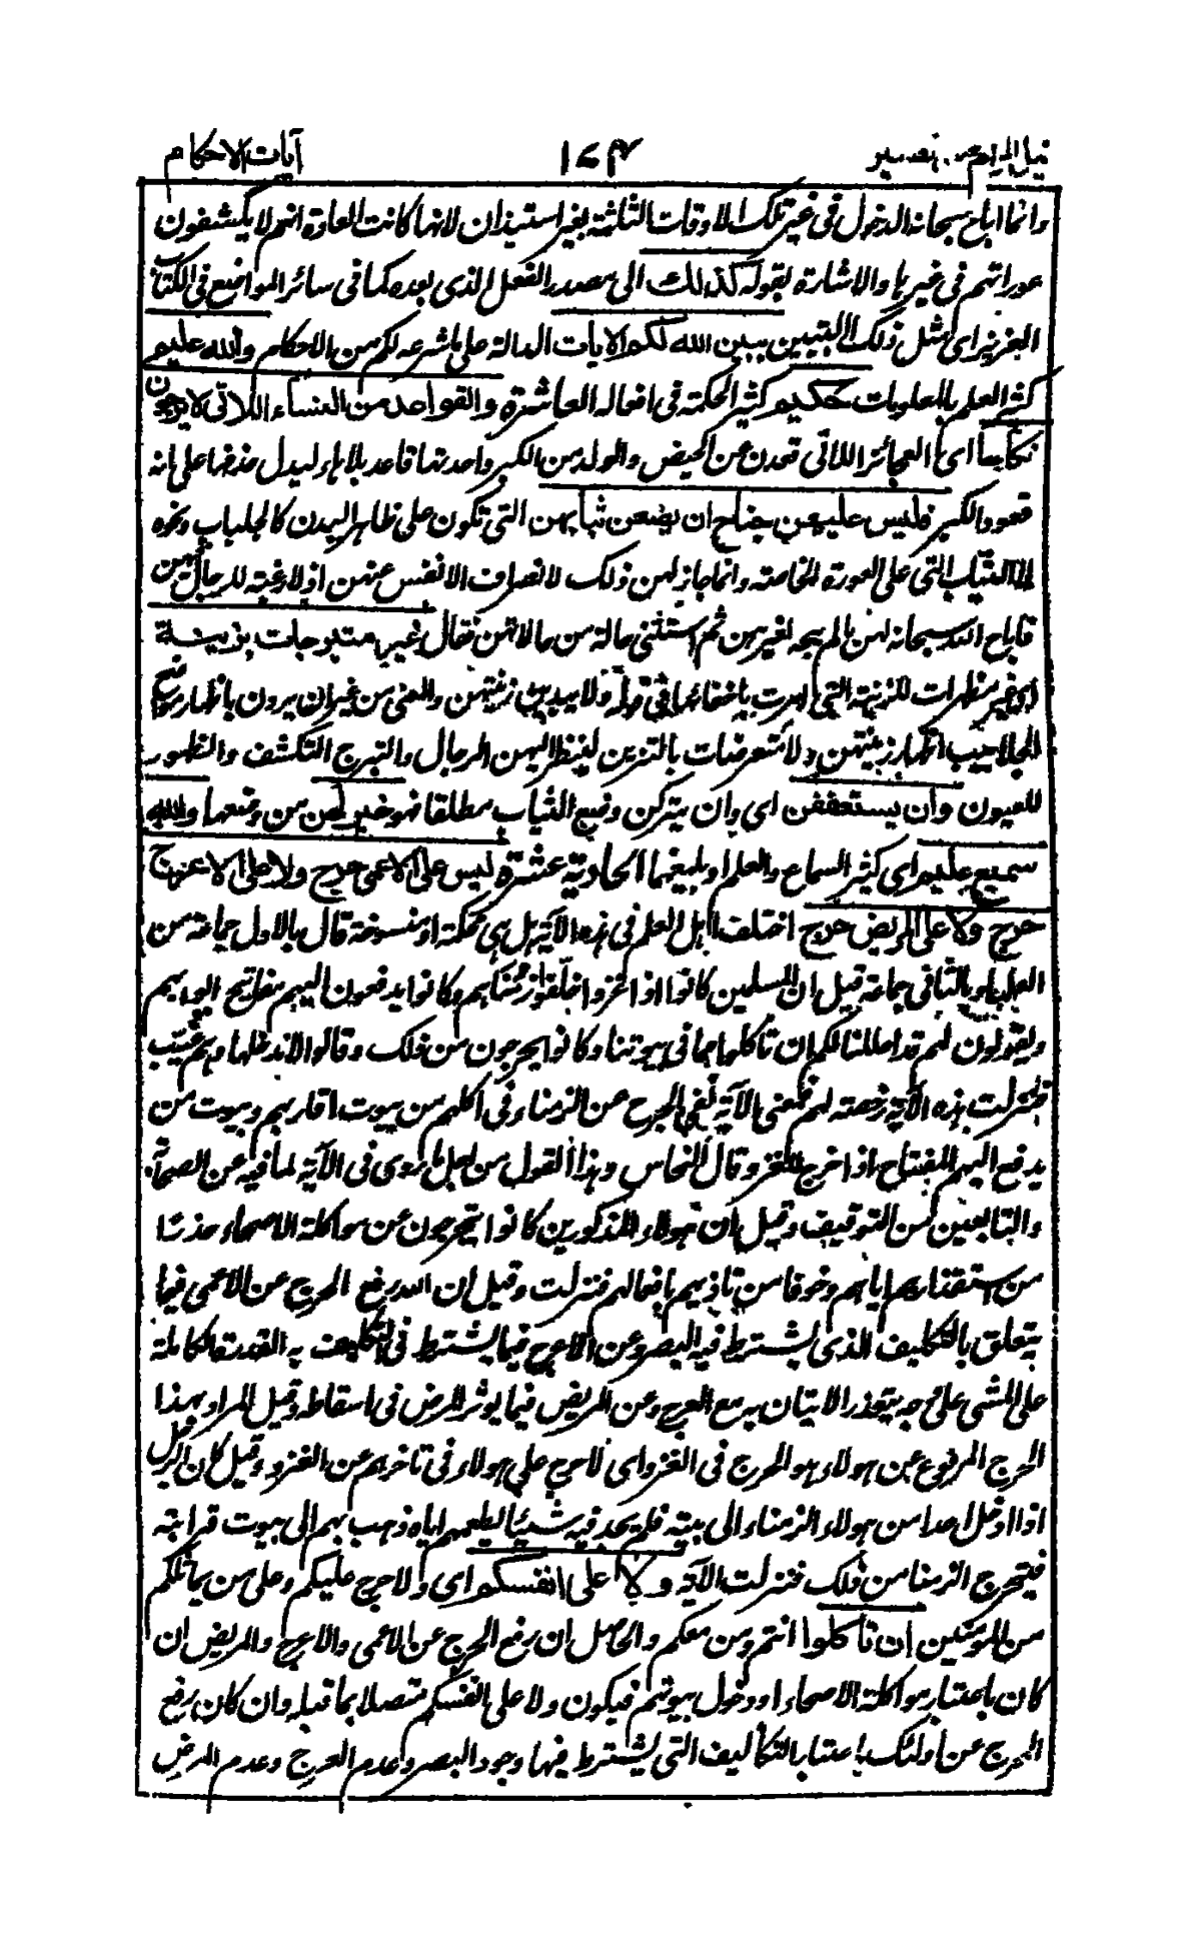 نيل المرام من تفسير ١٧٣ آيات الاحكام
وانما اباح سبحانه الدخول في غير تلك الاوقات الثلثة بغير استيذان لانها كانت العادة انهم لا يكشفون
عوراتهم في غيرها والاشارة بقوله كذلك الى مصدر الفعل الذي بعده كما في سائر المواضع في الكتاب
العزيز اي مثل ذلك التبيين يبين الله لكم الايات الدالة على ما شرعه لكم من الاحكام والله عليم
كثير العلم بالمعلومات حكيم كثير الحكمة في افعاله العاشرة والقواعد من النساء اللاتي لا يرجون
نكاحا اي العجائز اللاتي قعدن عن الحيض والولد من الكبر واحدتها قاعد بلا هاء ليدل حذفها على انه
قعود الكبر فليس عليهن جناح ان يضعن ثيابهن التي تكون على ظاهر البدن كالجلباب ونحوه
لا الثياب التي على العورة الخاصة وانما جاز لهن ذلك لانصراف الانفس عنهن اذ لا رغبة للرجال فيهن
فاباح الله سبحانه لهن ما لم يبحه لغيرهن ثم استثنى حالة من حالاتهن فقال غير متبرجات بزينة
اي غير مظهرات للزينة التي امرت باخفائها في قوله ولا يبدين زينتهن والمعنى من غير ان يردن باظهار موضع
الجلابيب اظهار زينتهن ولا متعرضات بالتزين لينظر اليهن الرجال والتبرج التكشف والظهور
للعيون وان يستعففن اي وان يتركن وضع الثياب مطلقا فهو خير لهن من وضعها والله
سميع عليم اي كثير السماع والعلم او بليغهما الحادية عشرة ليس على الاعمى حرج ولا على الاعرج
حرج ولا على المريض حرج اختلف اهل العلم في هذه الآية هل هي محكمة او منسوخة قال بالاول جماعة من
العلماء وبالثاني جماعة قيل ان المسلمين كانوا اذا غزوا خلفوا زمناهم وكانوا يدفعون اليهم مفاتيح ابوابهم
ويقولون لهم قد احللنا لكم ان تأكلوا مما في بيوتنا وكانوا يتحرجون من ذلك وقالوا لا ندخلها وهم غيب
فنزلت هذه الآية رخصة لهم فمعنى الآية نفي الحرج عن الزمناء في اكلهم من بيوت اقاربهم وبيوت من
يدفع اليهم المفتاح اذا خرج للغزو وقال النحاس وهذا القول من اجل ما روى في الآية لما فيه عن الصحابة
والتابعين من التوقيف وقيل ان هولاء المذكورين كانوا يتحرجون عن مواكلة الاصحاء حذرا
من استقذارهم اياهم وخوفا من تاذيهم بافعالهم فنزلت وقيل ان الله رفع الحرج عن الاعمى فيما
يتعلق بالتكليف الذي يشترط فيه البصر وعن الاعرج فيما يشترط في التكليف به القدرة الكاملة
على المشي على وجه يتعذر الاتيان به مع العرج وعن المريض فيما يوثر المرض في اسقاطه وقيل المراد بهذا
الحرج المرفوع عن هولاء هو الحرج في الغزو اي لا حرج على هولاء في تاخرهم عن الغزو وقيل كان الرجل
اذا ادخل احدا من هولاء الزمناء الى بيته فلم يجد فيه شيئا يطعمهم اياه ذهب بهم الى بيوت قرابته
فيتحرج الزمنا من ذلك فنزلت الآية ولا على انفسكم اي ولا حرج عليكم وعلى من يماثلكم
من المومنين ان تأكلوا انتم ومن معكم والحاصل ان رفع الحرج عن الاعمى والاعرج والمريض ان
كان باعتبار مواكلة الاصحاء او دخول بيوتهم فيكون ولا على انفسكم متصلا بما قبله وان كان رفع
الحرج عن اولئك باعتبار التكاليف التي يشترط فيها وجود البصر وعدم العرج وعدم المرض